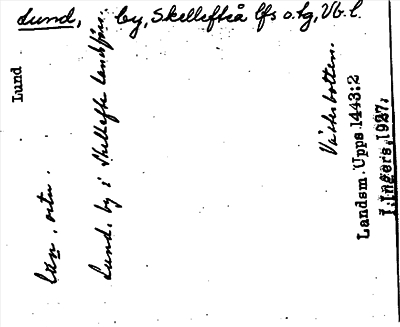 Lund, by, Skellefteå lfs o. tg, Vb. l.
Lund
ortn.
Lund. by i Skellefte landsförs.
Västerbotten.
Landsm. Upps. 1443:2
I. Ingers, 1927.